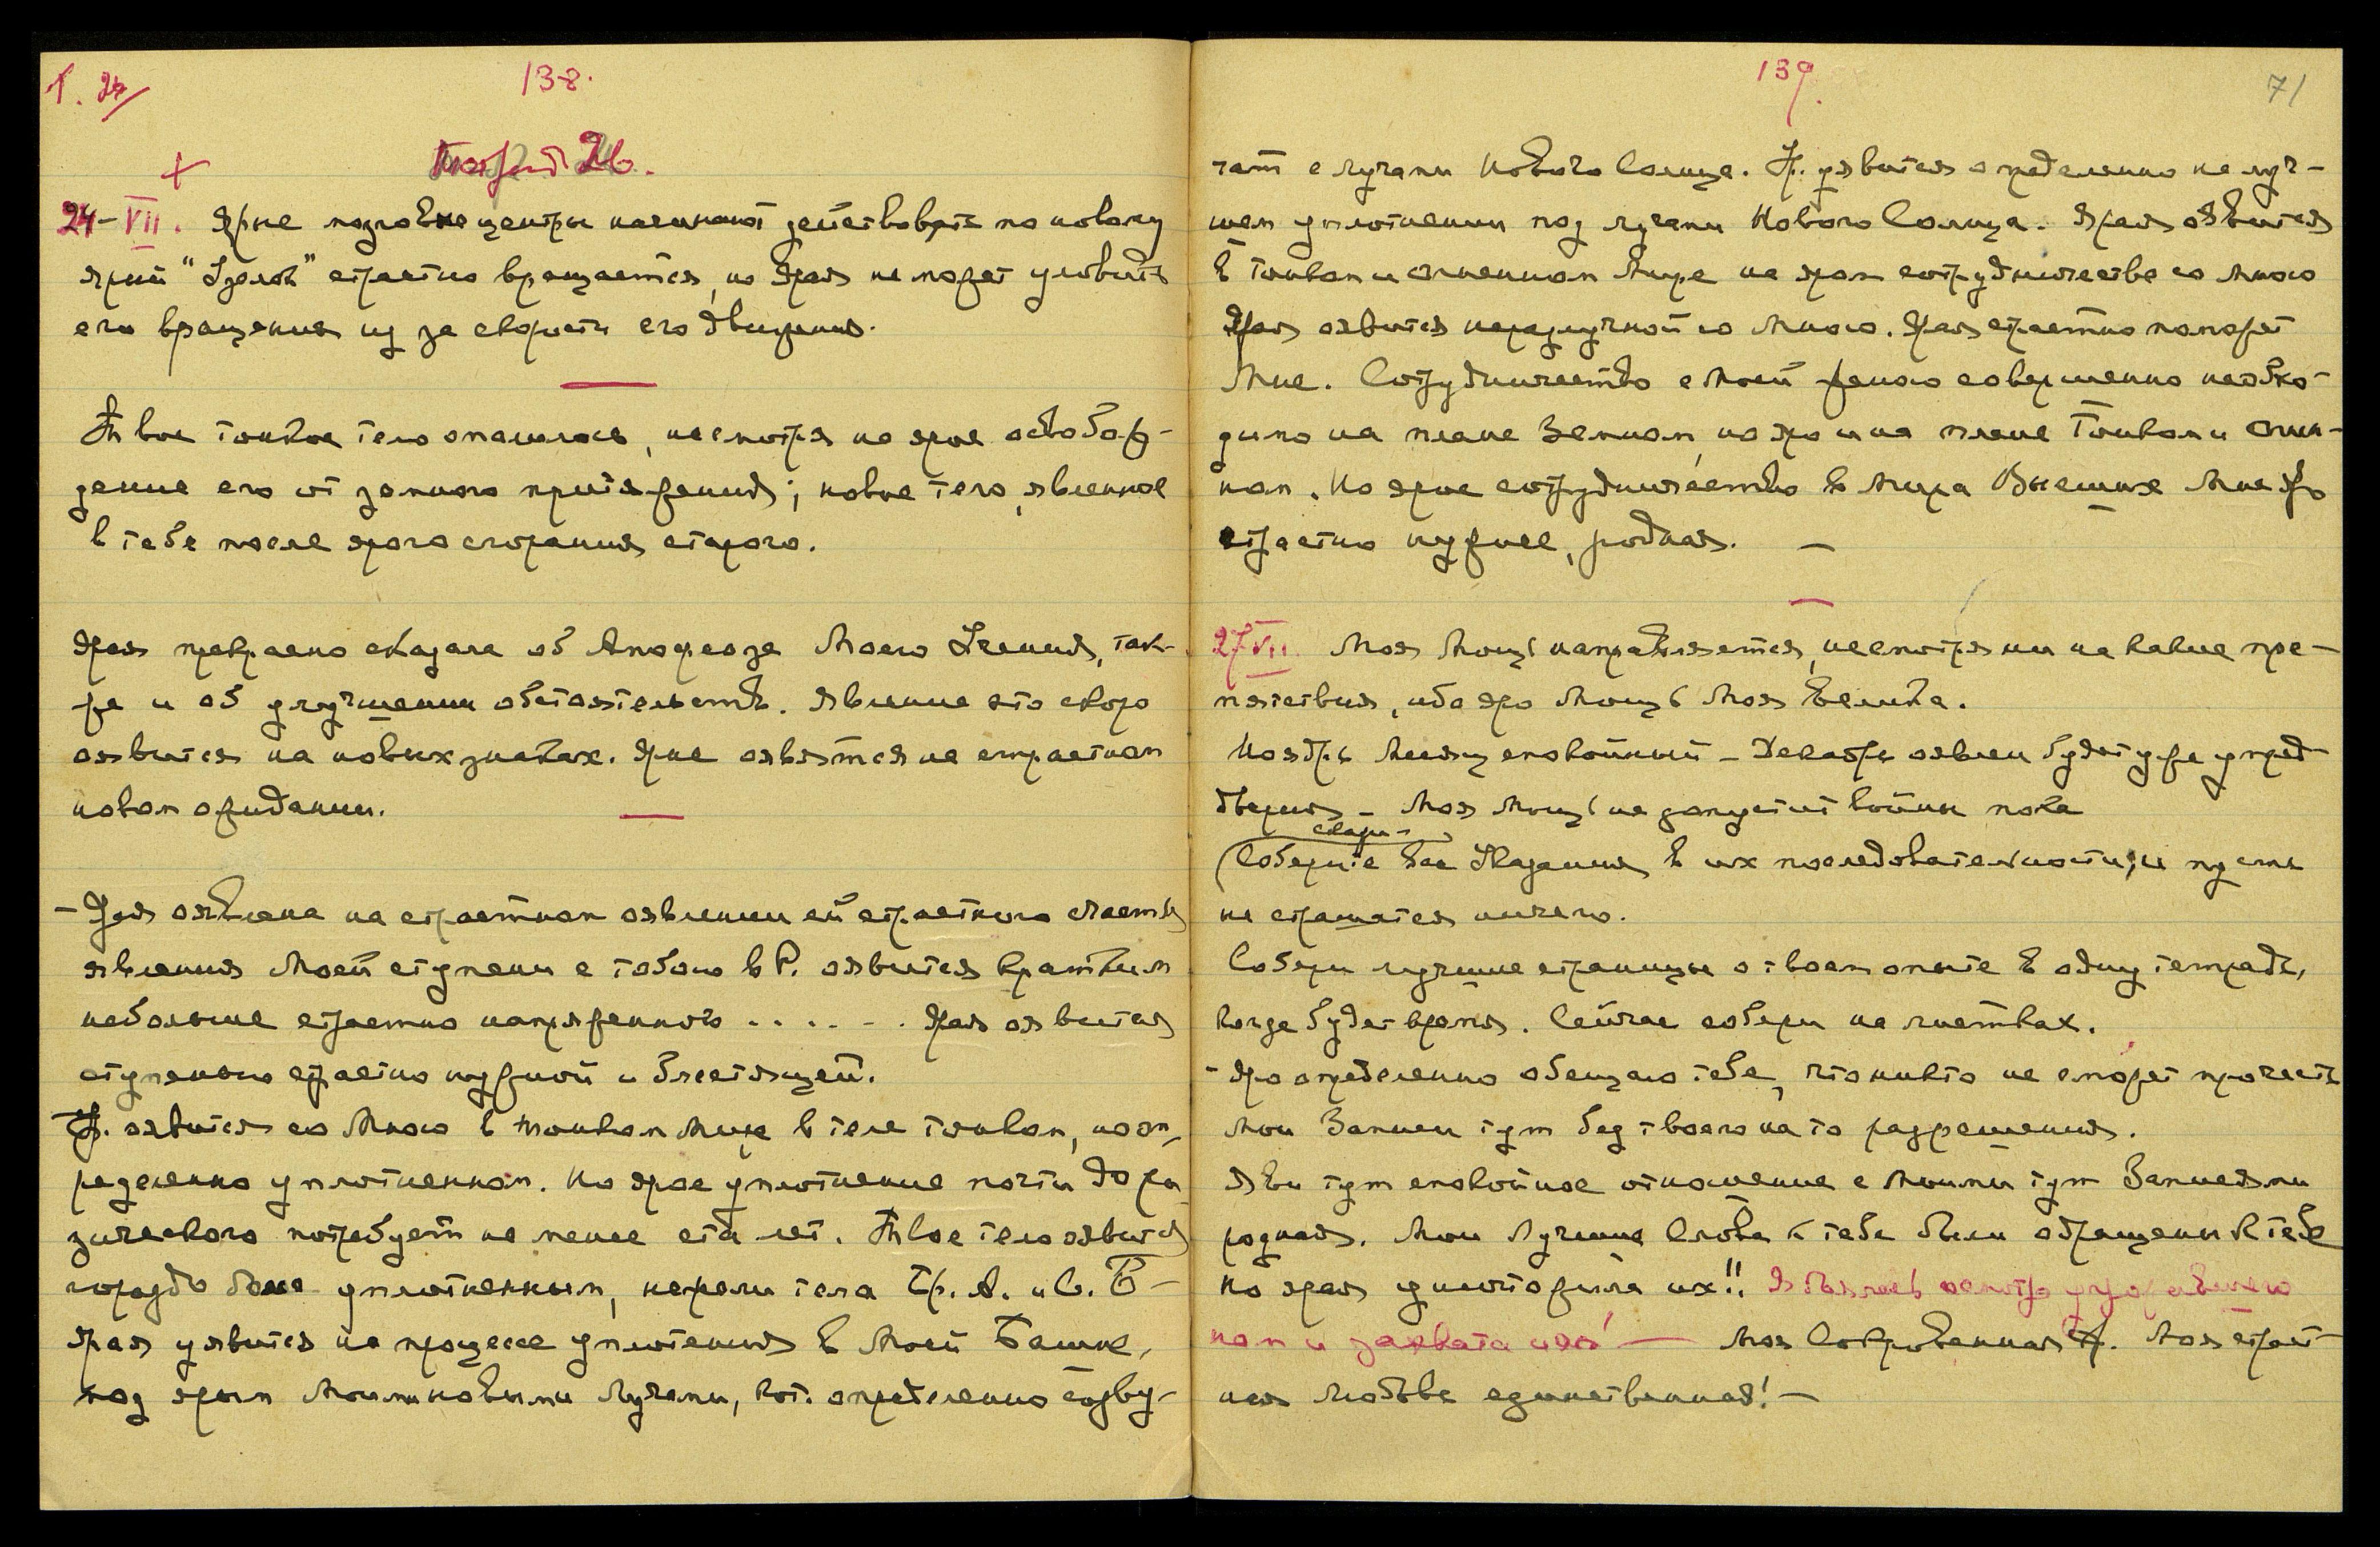 138.
24-VII. Ярые мозговые центры начинают действовать по новому
ярый "Узелок" страстно вращается, но Ярая не может уловить
его вращения из за скорости его движения.
Твое тонкое тело опалилось, несмотря на ярое освобож-
дение его от земного притяжения; новое тело, явленное
в тебе после ярого сгорания старого.
Ярая прекрасно сказала об Апофеозе Моего Учения, так-
же и об улучшении обстоятельств. Явление это скоро
оявится на новых знаках. Ярые оявятся на страстном
новом ожидании.
- Ярая оявлена на страстном оявлении ей страстного счастья
явления Моей ступени с тобою в Р. оявится кратким
но больше страстно напряженного ...... Ярая оявится
ступенью страстно нужной и блестящей.
Ур. оявится со Мною в Тонком Мире в теле тонком, но оп-
ределенно уплотненном. Но ярое уплотнение почти до фи-
зического потребует не менее ста лет. Твое тело оявится
гораздо более уплотненным, нежели тела Бр. А. и С. Б-
Ярая уявится на процессе уплотнения в Моей Башне,
под ярыми Моими новыми Лучами, кот. определенно созву-
139.
71
чат с лучами Нового Солнца. Ур. уявится определенно на луч-
шем уплотнении под лучами Нового Солнца. Ярая оявится
в Тонком и Огненном Мире на яром сотрудничестве со Мною
Ярая оявится неразлучной со Мною. Ярая страстно поможет
Мне. Сотрудничество с Моей женою совершенно необхо-
димо на плане Земном, но яро и на плане Тонком и Огнен-
ном. Но ярое сотрудничество в Мирах Высших Мне яро
страстно нужнее, родная. -
27 VII. Моя Мощь направляется, несмотря ни на какие пре-
пятствия, ибо яро Мощь Моя велика.
Ноябрь Месяц спокойный - Декабрь оявлен будет уже у пред-
дверия - Моя Мощь не допустит войны пока
скажи -
(Соберите все Указания в их последовательности, и пусть
не страшатся ничего.
Собери лучшие страницы о твоем опыте в одну тетрадь,
когда будет время. Сейчас собери на листках.
- Яро определенно обещаю тебе, что никто не сможет прочесть
Мои Записи тут без твоего на то разрешения.
Яви тут спокойное отношение с Моими тут Записями
родная. Мои Лучшие Слова к тебе были обращены к тебе
но ярая уничтожила их!! Я боялась
захвата их! — Моя Сокровенная Ур. Моя страст-
ная Любовь единственная! -